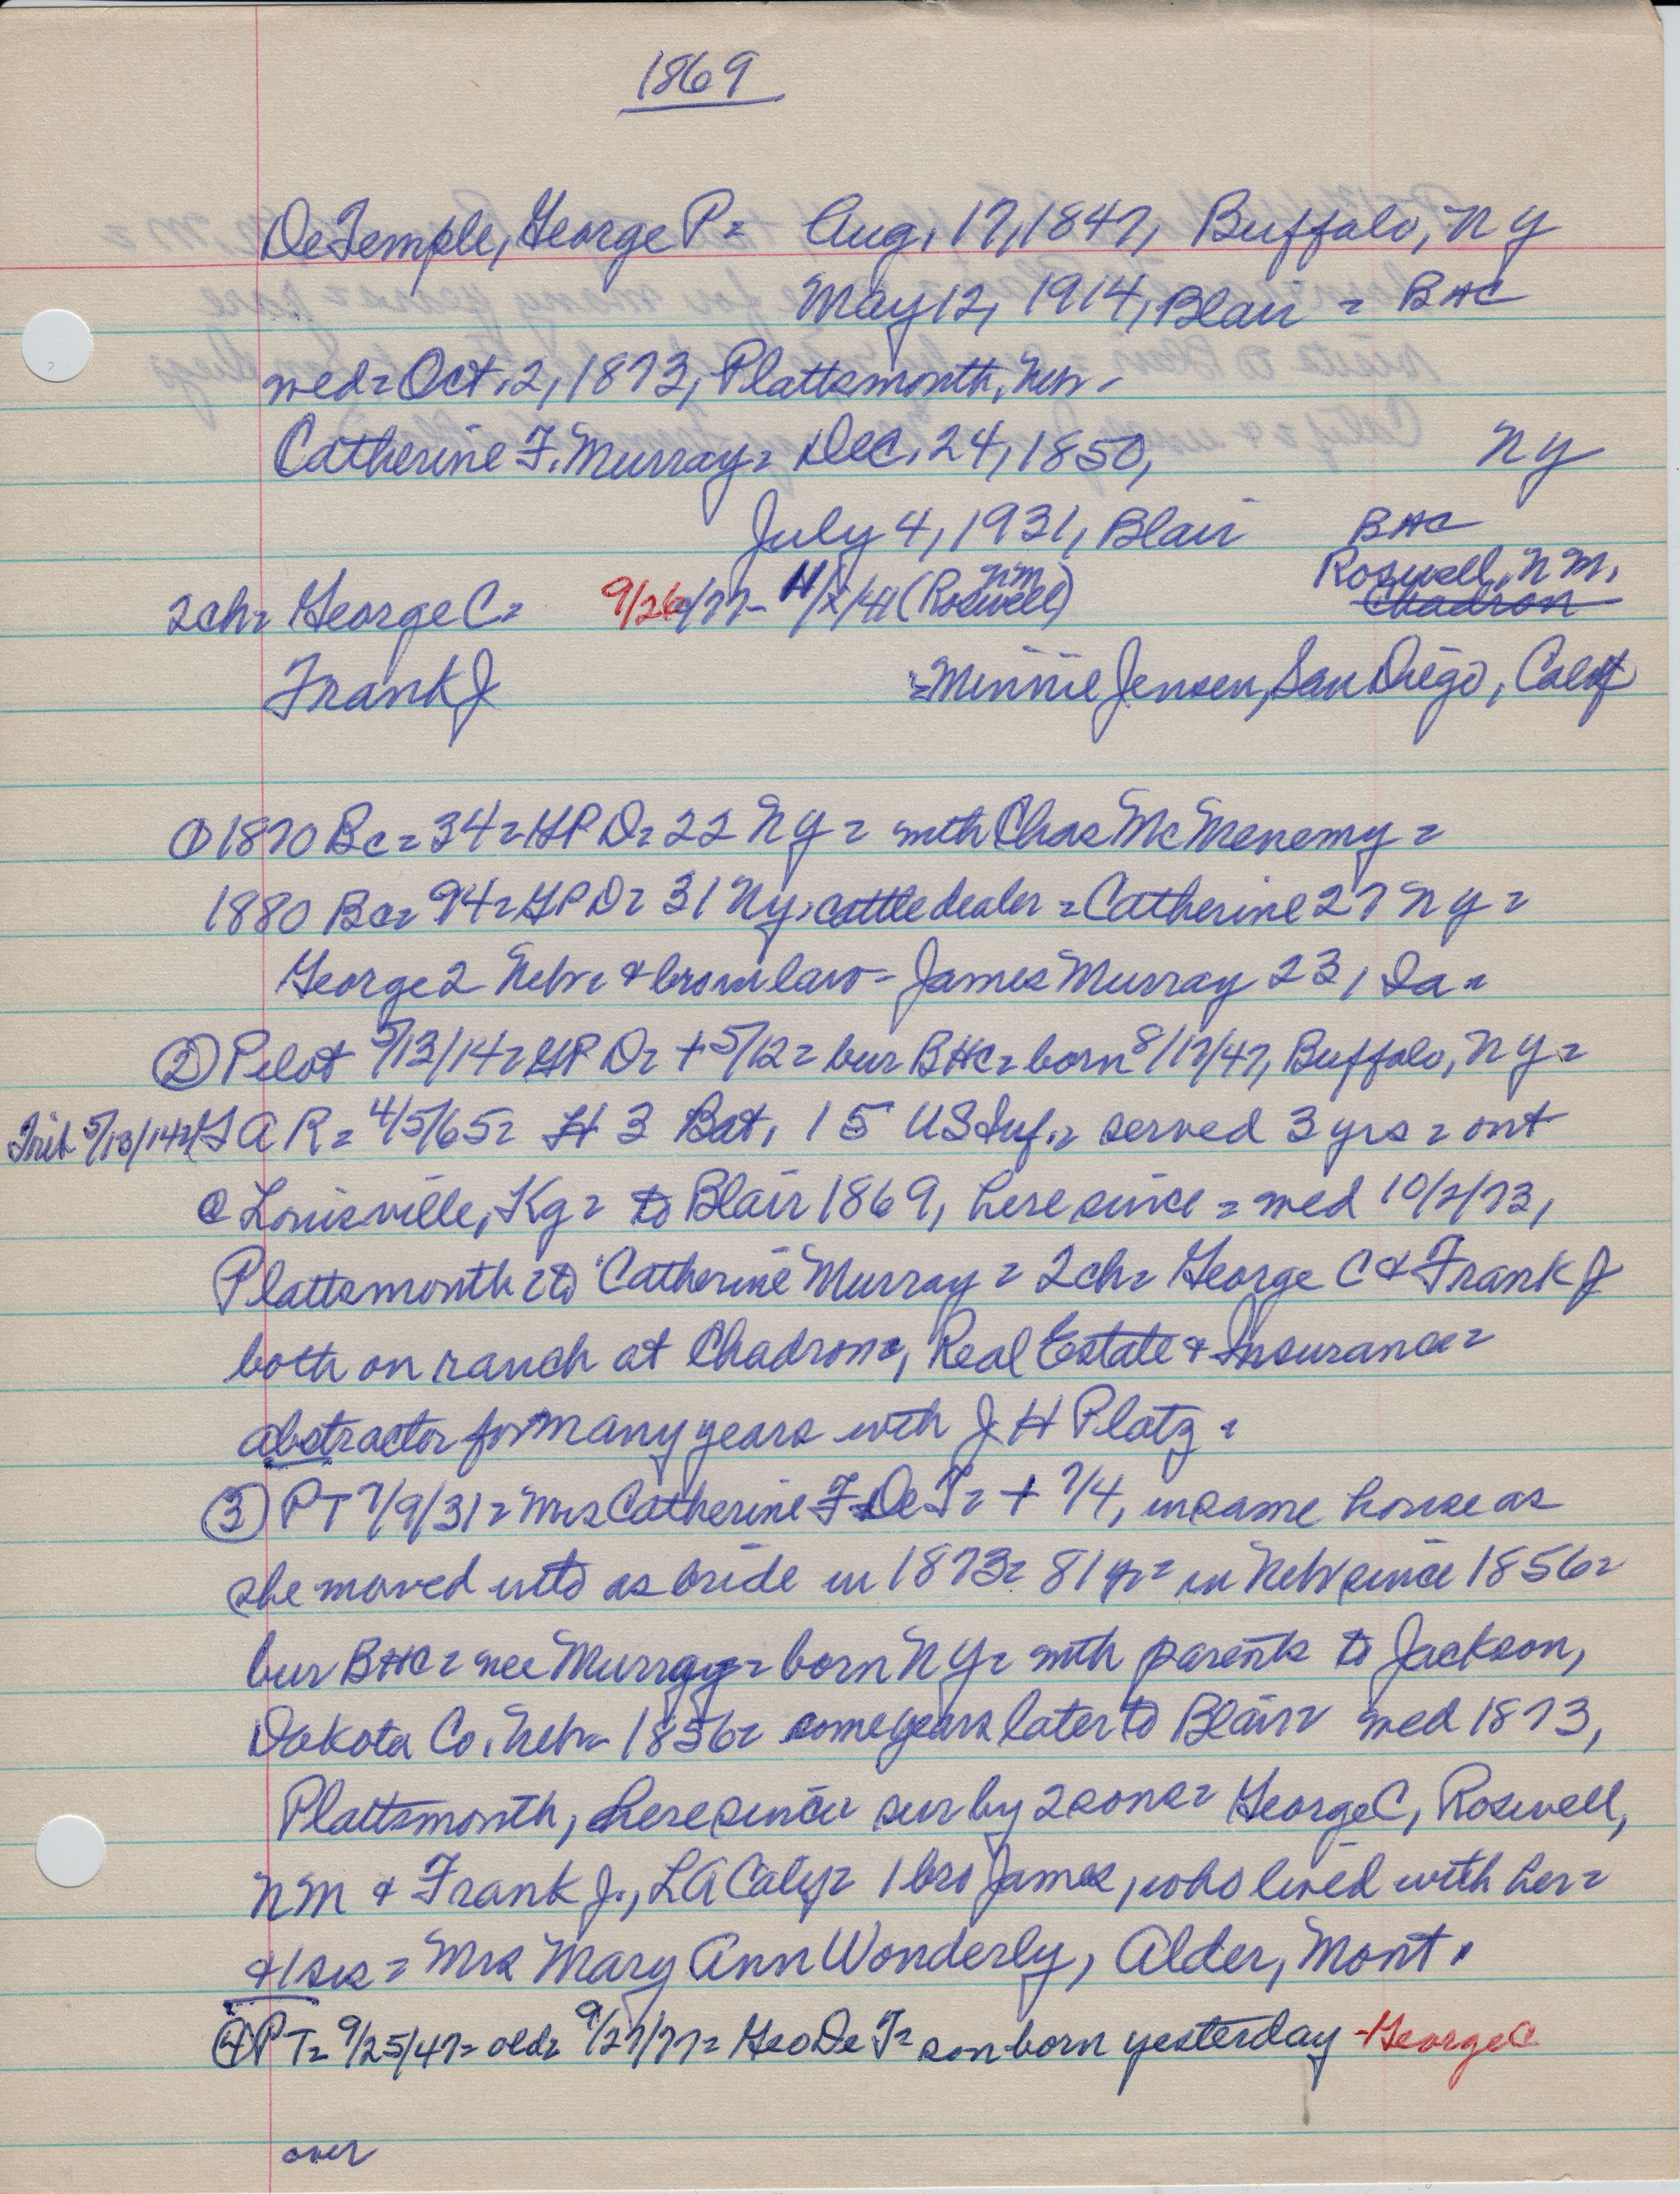 1869
DeTemple, George P = Aug. 17, 1847, Buffalo, NY
May 12, 1914, Blair = BHC
wed = Oct. 2, 1873, Plattsmonth, Nebr.
Catherine F. Murray = Dec. 24, 1850, NY
July 4, 1931, Blair BHC
2ch = George C = 9/26/77 - 11/x/41 (Roswell) NM Roswell, NM, Chadron
Frank J = Minnie Jensen, San Diego, Calif
① 1870 Bc = 34 = GP D = 22 NY = with Chas McMenemy =
1880 Bc = 94 = GP D = 31 NY, cattle dealer = Catherine 27 NY =
George 2 Nebr & bro in law - James Murray 23, Ia =
② Pilot 5/13/14 = GP D = + 5/12 = bur BHC = born 8/17/47, Buffalo, NY =
Trib 5/13/14 = GAR = 4/5/65 = H 3 Bat, 15 US Inf. = served 3 yrs = out
@ Louisville, Ky = to Blair 1869, here since = wed 10/2/73,
Plattsmonth = to Catherine Murray = 2ch = George C & Frank J
both on ranch at Chadron =, Real Estate & Insurance =
abstractor for many years with J H Platz =
③ PT 7/9/31 = Mrs Catherine F De T = + 7/4, in same house as
she moved into as bride in 1873 = 81 yr = in Nebr since 1856 =
bur BHC = nee Murray = born NY = with parents to Jackson,
Dakota Co. Nebr 1856 = some years later to Blair = wed 1873,
Plattsmonth, here since = sur by 2 sons = George C, Roswell,
NM & Frank J., LA Calif = 1 bro James, who lived with her =
& 1 sis = Mrs Mary Ann Wonderly, Alder, Mont.
④ PT = 9/25/47 = old = 9/27/77 = Geo De T = son born yesterday - George C
over